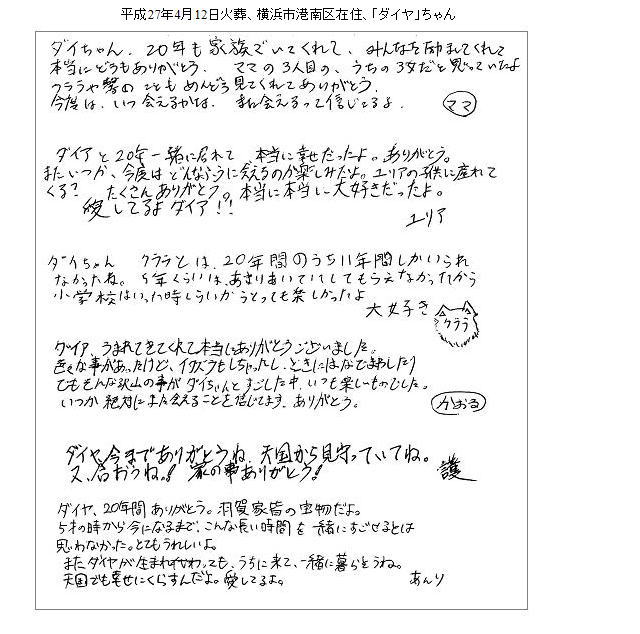 平成27年4月12日火葬、横浜市港南区在住、「ダイヤ」ちゃん
ダイちゃん、20年も家族でいてくれて、みんなを励ましてくれて
本当にどうもありがとう。ママの3人目の、うちの3女だと思っていたよ
クララや馨のこともめんどう見てくれてありがとう。
今度は、いつ会えるかな、また会えるって信じてるよ。 ママ
ダイアと20年一緒に居れて 本当に幸せだったよ。ありがとう。
またいつか、今度はどんなふうに会えるのか楽しみだよ。ユリアの子供に産れて
くる? たくさんありがとう。本当に本当に大好きだったよ。
愛してるよダイア!!
ユリア
ダイちゃん クララとは、20年間のうち11年間しかいられ
なかったね。5年くらいは、あまりあいてにしてもらえなかったから
小学校はいった時くらいからとっても楽しかったよ
大好き クララ
ダイア、うまれてきてくれて本当にありがとうございました。
色々な事があったけど、イタズラもしちゃったし、ときには
でもそんな沢山の事がダイちゃんとすごした中、いつも楽しいものでした。
いつか絶対にまた会えることを信じてます、ありがとう。 かおる
ダイヤ、今までありがとうね、天国から見守っていてね。
又、会おうね!! 家の事ありがとう! 護
ダイヤ、20年間ありがとう。羽賀家皆の宝物だよ。
5才の時から今になるまで、こんな長い時間を一緒にすごせるとは
思わなかった。とてもうれしいよ。
またダイヤが生まれかわっても、うちに来て、一緒に暮らそうね。
天国でも幸せにくらすんだよ。愛してるよ。 あんり